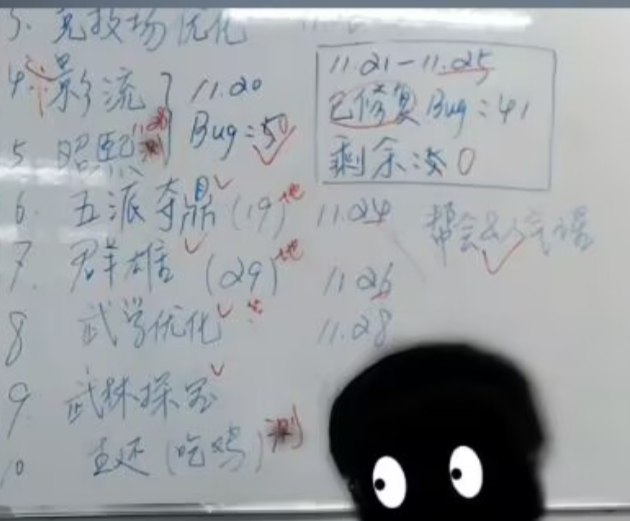 3. 竞技场优化
4. 影流
11.20
5 昭熙 11.28 测
Bug:50
11.21-11.25
已修复Bug:41
剩余:0
6. 五派夺鼎(19)地 11.24
帮会
7. 群雄(29)地 11.26
8 武学优化 11.28
9. 武林探宝
10 (吃鸡)测